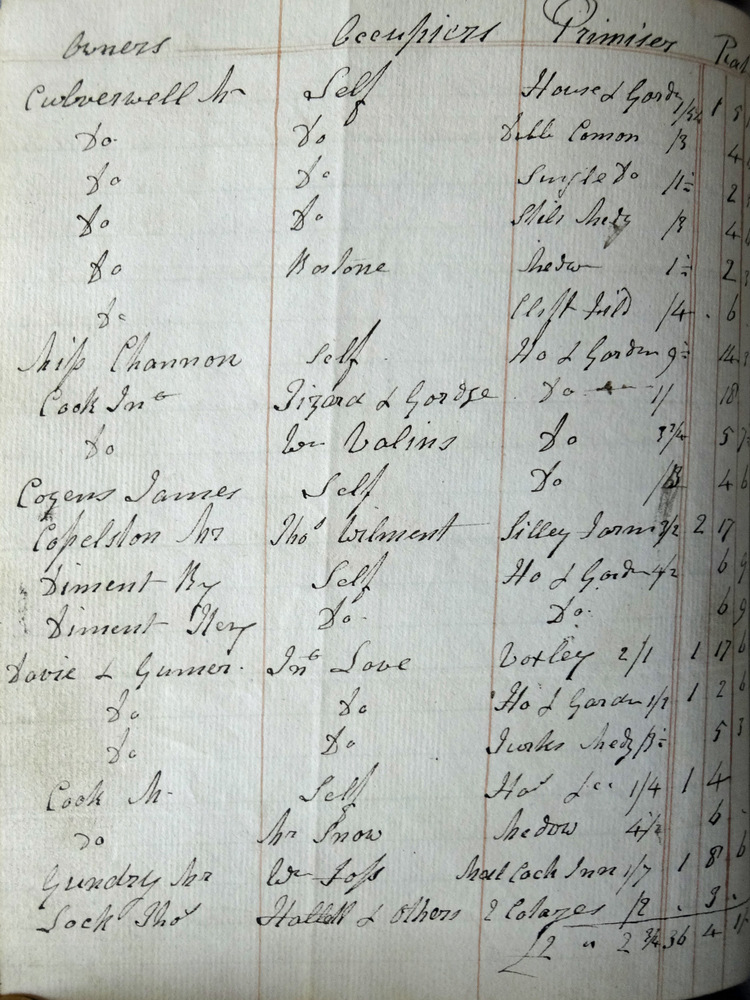 Owners Occupiers Primises
Culverwell Mr Self House & Garden 1 5
Do Do Dubble Comon /3 4
Do Do Single Do 2
Do Do Stils Medw /3 4
Do Bostone Medw 2
Do Clift Field /4 6
Miss Channon Self Ho & Garden 14
Cook Jno Jizard & Gordge Do 1/ 18
Do Wm Valins Do 3 3/4 5
Cozens James Self Do 4
Copelston Mr Thos Wilment Silley Farm 2 17
Diment By Self Ho & Garden 4/2 6 9
Diment Heny Do Do 6 9
Davie & Gumer Jno Love Voxley 2/1 1 17 6
Do Do Ho & Garden 1/2 1 2 6
Do Do Turks Medw 5 3
Cook Mr Self Hos &c 1/4 1 4
Do Mr Snow Medow 4 1/2 6
Gundry Mr Wm Foss Inn 1/7 1 8 6
Lock Thos Hallett & Others 2 Cotages /2 3
£2 " 2 3/4 36 4